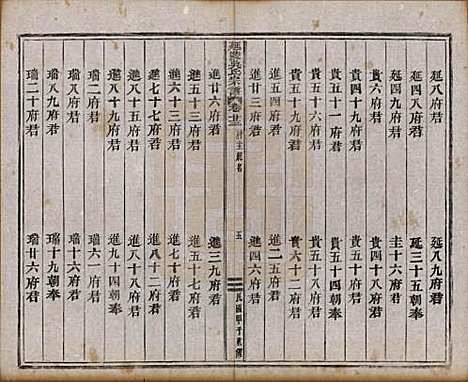 延八府君
延八九府君
延四九府君
延三十五朝奉
貴四十九府君
圭十六府君
貴五十一府君
貴五十四朝奉
貴六十一府君
貴六十二府君
進五四府君
進二五府君
進廿三府君
進四六府君
五
進廿六府君
進三九府君
進五十三府君
進五十七府君
進六十三府君
進七十府君
進七十七府君
進八十二府君
進八十五府君
進八十八府君
進八十九府君
進九十四朝奉
瑞八八府君
瑞六一府君
瑞八九府君
瑞十六府君
瑞十八府君
瑞十九朝奉
瑞二十府君
瑞廿六府君